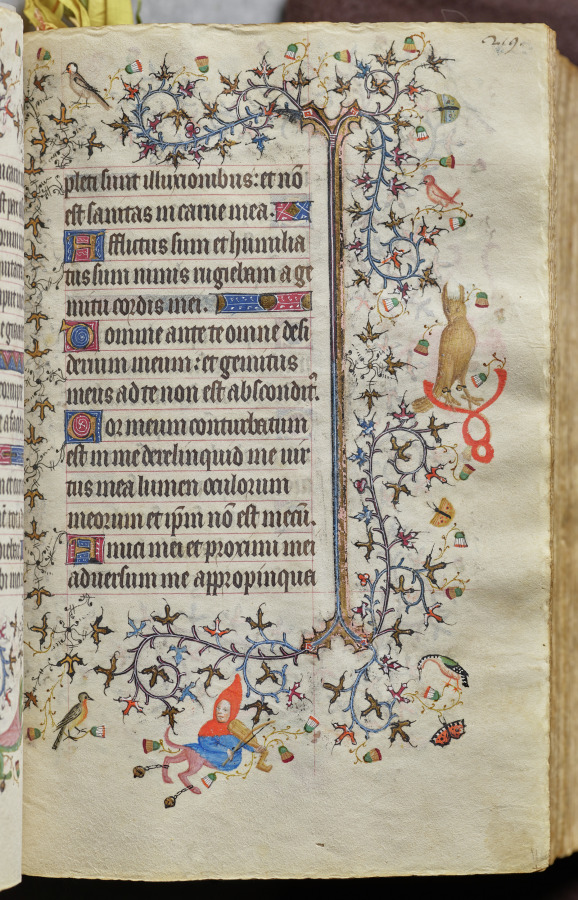 pleti sunt illuxionibus: et nō
est sanitas in carne mea.
Afflictus sum et humilia
tus sum nimis rugiebam a ge
mitu cordis mei.
Domine ante te omne desi
derium meum: et gemitus
meus ad te non est absconditꝰ.
Cor meum conturbatum
est in me derelinquid me vir
tus mea lumen oculorum
meorum et ip̄m nō est mecū.
Amici mei et proximi mei
adversum me appropinqua